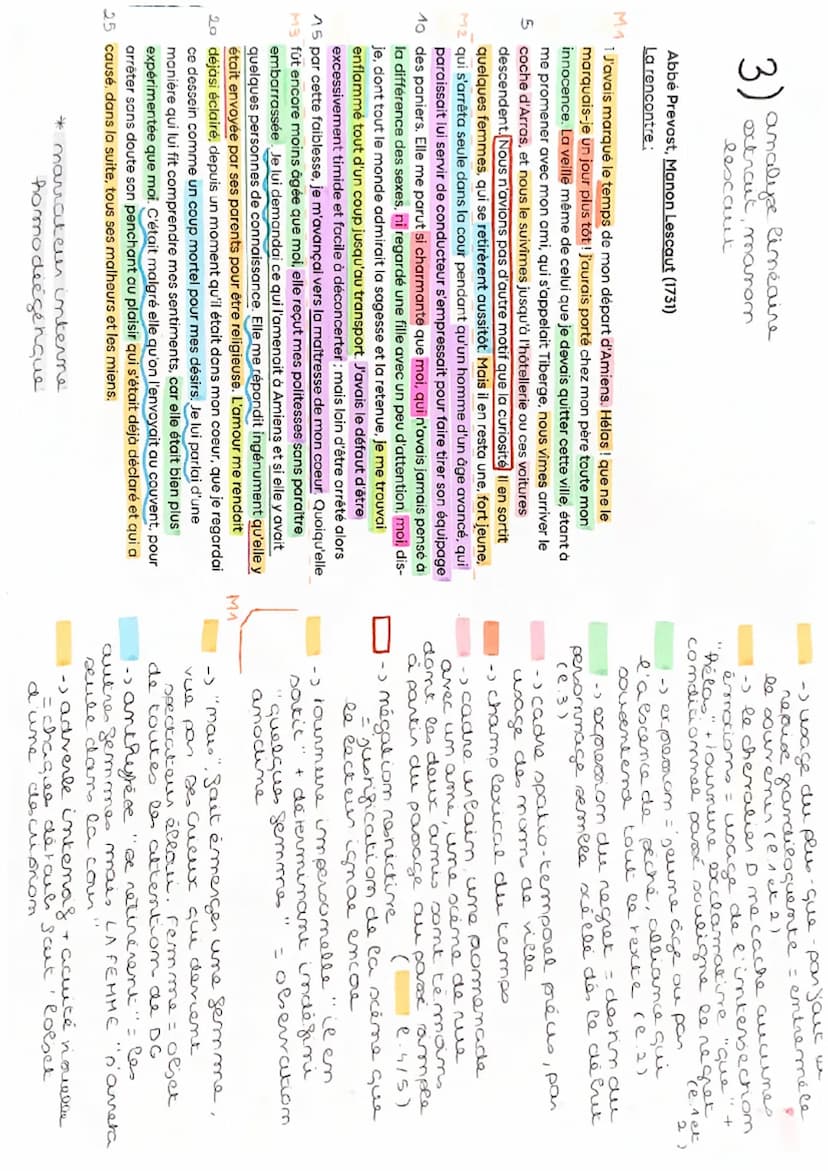 3) analyse linéaire
extrait, manon
lescaut
Abbé Prevost, Manon Lescaut (1731)
La rencontre :
M1
1 J'avais marqué le temps de mon départ d'Amiens. Hélas ! que ne le
marquais-je un jour plus tôt ! j'aurais porté chez mon père toute mon
innocence. La veille même de celui que je devais quitter cette ville, étant à
me promener avec mon ami, qui s'appelait Tiberge, nous vîmes arriver le
5 coche d'Arras, et nous le suivîmes jusqu'à l'hôtellerie où ces voitures
descendent. Nous n'avions pas d'autre motif que la curiosité. Il en sortit
quelques femmes, qui se retirèrent aussitôt. Mais il en resta une, fort jeune,
M2 qui s'arrêta seule dans la cour pendant qu'un homme d'un âge avancé, qui
paraissait lui servir de conducteur s'empressait pour faire tirer son équipage
10 des paniers. Elle me parut si charmante que moi, qui n'avais jamais pensé à
la différence des sexes, ni regardé une fille avec un peu d'attention, moi, dis-
je, dont tout le monde admirait la sagesse et la retenue, je me trouvai
enflammé tout d'un coup jusqu'au transport. J'avais le défaut d'être
excessivement timide et facile à déconcerter ; mais loin d'être arrêté alors
15 par cette faiblesse, je m'avançai vers la maîtresse de mon coeur. Quoiqu'elle
M3 fût encore moins âgée que moi, elle reçut mes politesses sans paraître
embarrassée. Je lui demandai ce qui l'amenait à Amiens et si elle y avait
quelques personnes de connaissance. Elle me répondit ingénument qu'elle y
était envoyée par ses parents pour être religieuse. L'amour me rendait
20 déjàsi éclairé, depuis un moment qu'il était dans mon coeur, que je regardai
ce dessein comme un coup mortel pour mes désirs. Je lui parlai d'une
manière qui lui fit comprendre mes sentiments, car elle était bien plus
expérimentée que moi. C'était malgré elle qu'on l'envoyait au couvent, pour
arrêter sans doute son penchant au plaisir qui s'était déjà déclaré et qui a
25 causé, dans la suite, tous ses malheurs et les miens.
* narrateur interne
homodiégétique
-> usage du plus-que-parfait
reprise grandiloquente = entremêle
le souvenir (l.1 et 2)
-> le chevalier D ne cache aucunes
émotions = usage de l'intersection
"hélas" + tournure exclamative "que" +
conditionnel passé souligne le regret
(l.1 et 2)
-> expression = jeune âge ou par
l'absence de péché, alliance qui
soustend tout le texte (l.2)
-> expression du regret = destin du
personnage semble scellé dès le début
(l.3)
-> cadre spatio-temporel précis, par
usage des noms de ville
-> champ lexical du temps
-> cadre urbain, une promenade
avec un ami, une scène de rue
dont les deux amis sont témoins
à partir du passage au passé simple
(l.4/5)
-> négation restrictive
= justification de la scène que
le lecteur ignore encore
-> tournure impersonnelle "il en
sortit" + déterminant indéfini
"quelques femmes" = observation
anodine
M1
-> "mais" fait émerger une femme,
vue par des cieux qui devient
spectateur ébloui. Femme = objet
de toutes les attention de DG
-> antithèse "se retirèrent" = les
autres femmes mais LA FEMME "s'arreta
seule dans la cour"
-> adverbe intensif + acuité visuelle
= chaque détails fait l'objet
d'une description